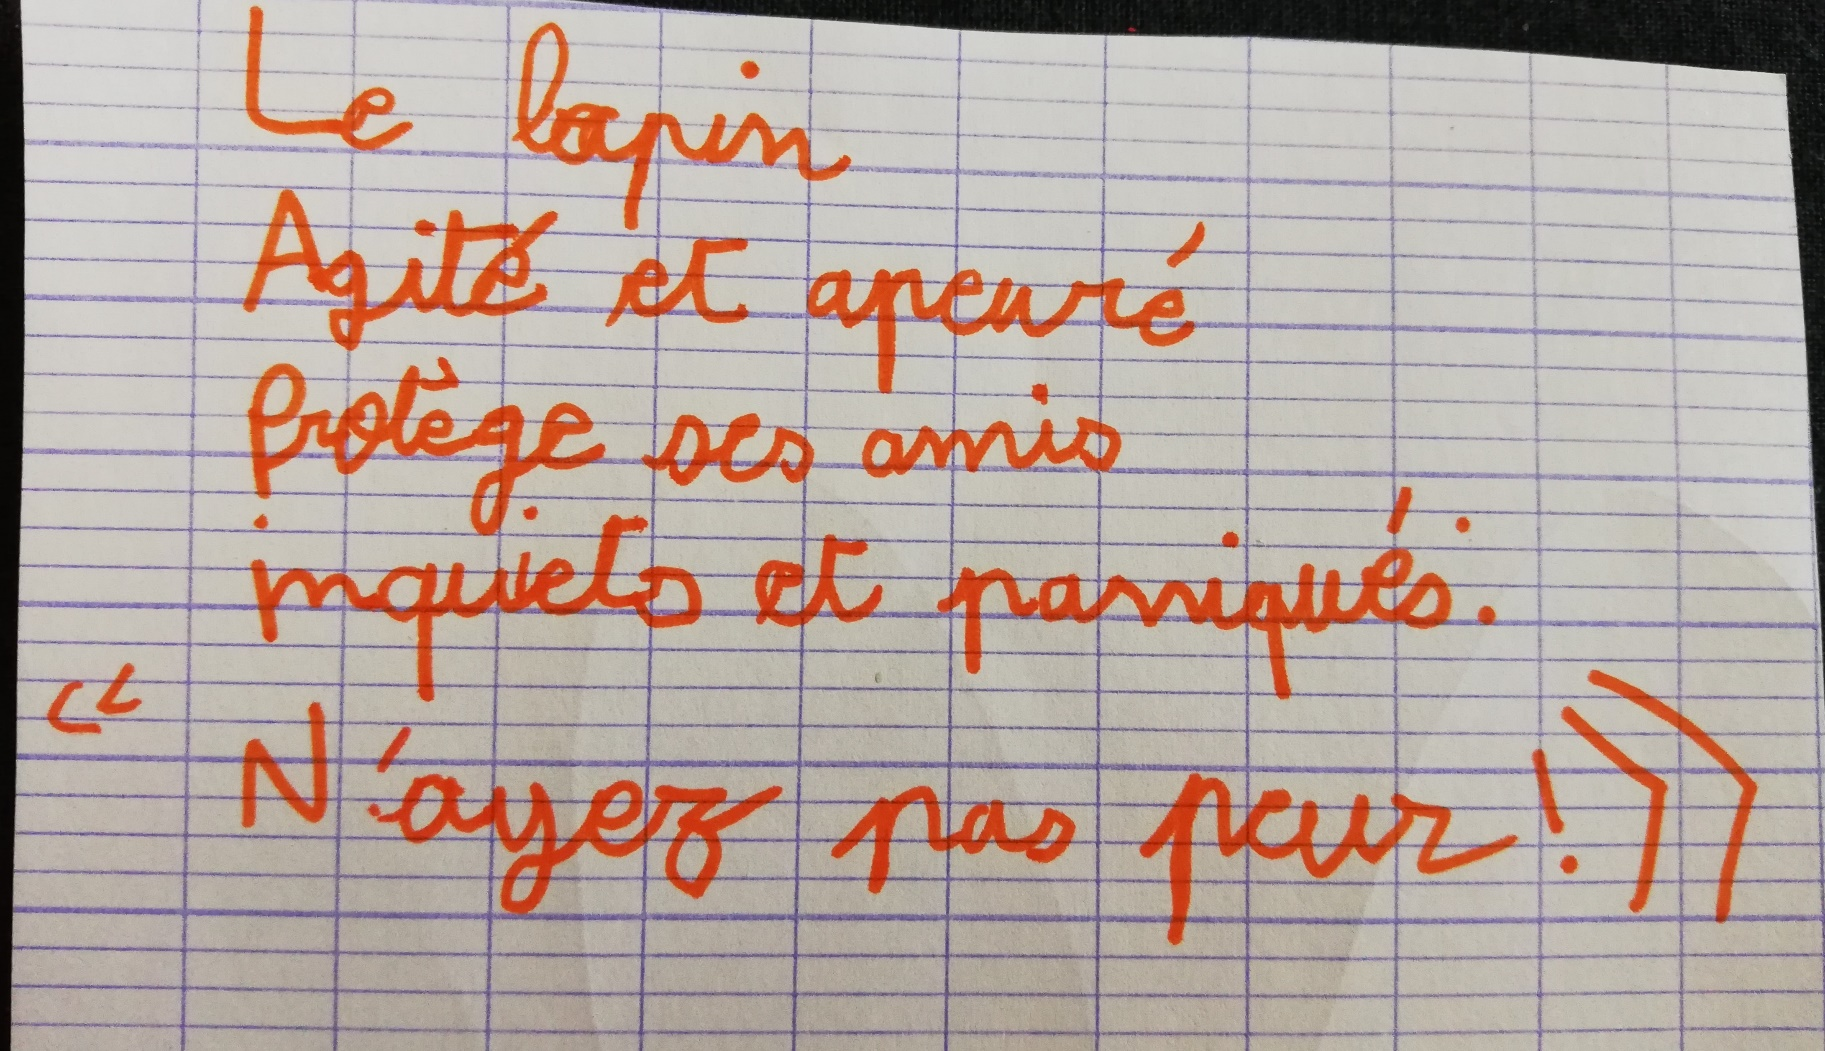 Le lapin
Agité et apeuré
Protège ses amis
inquiets et paniqués.
« N'ayez pas peur ! »